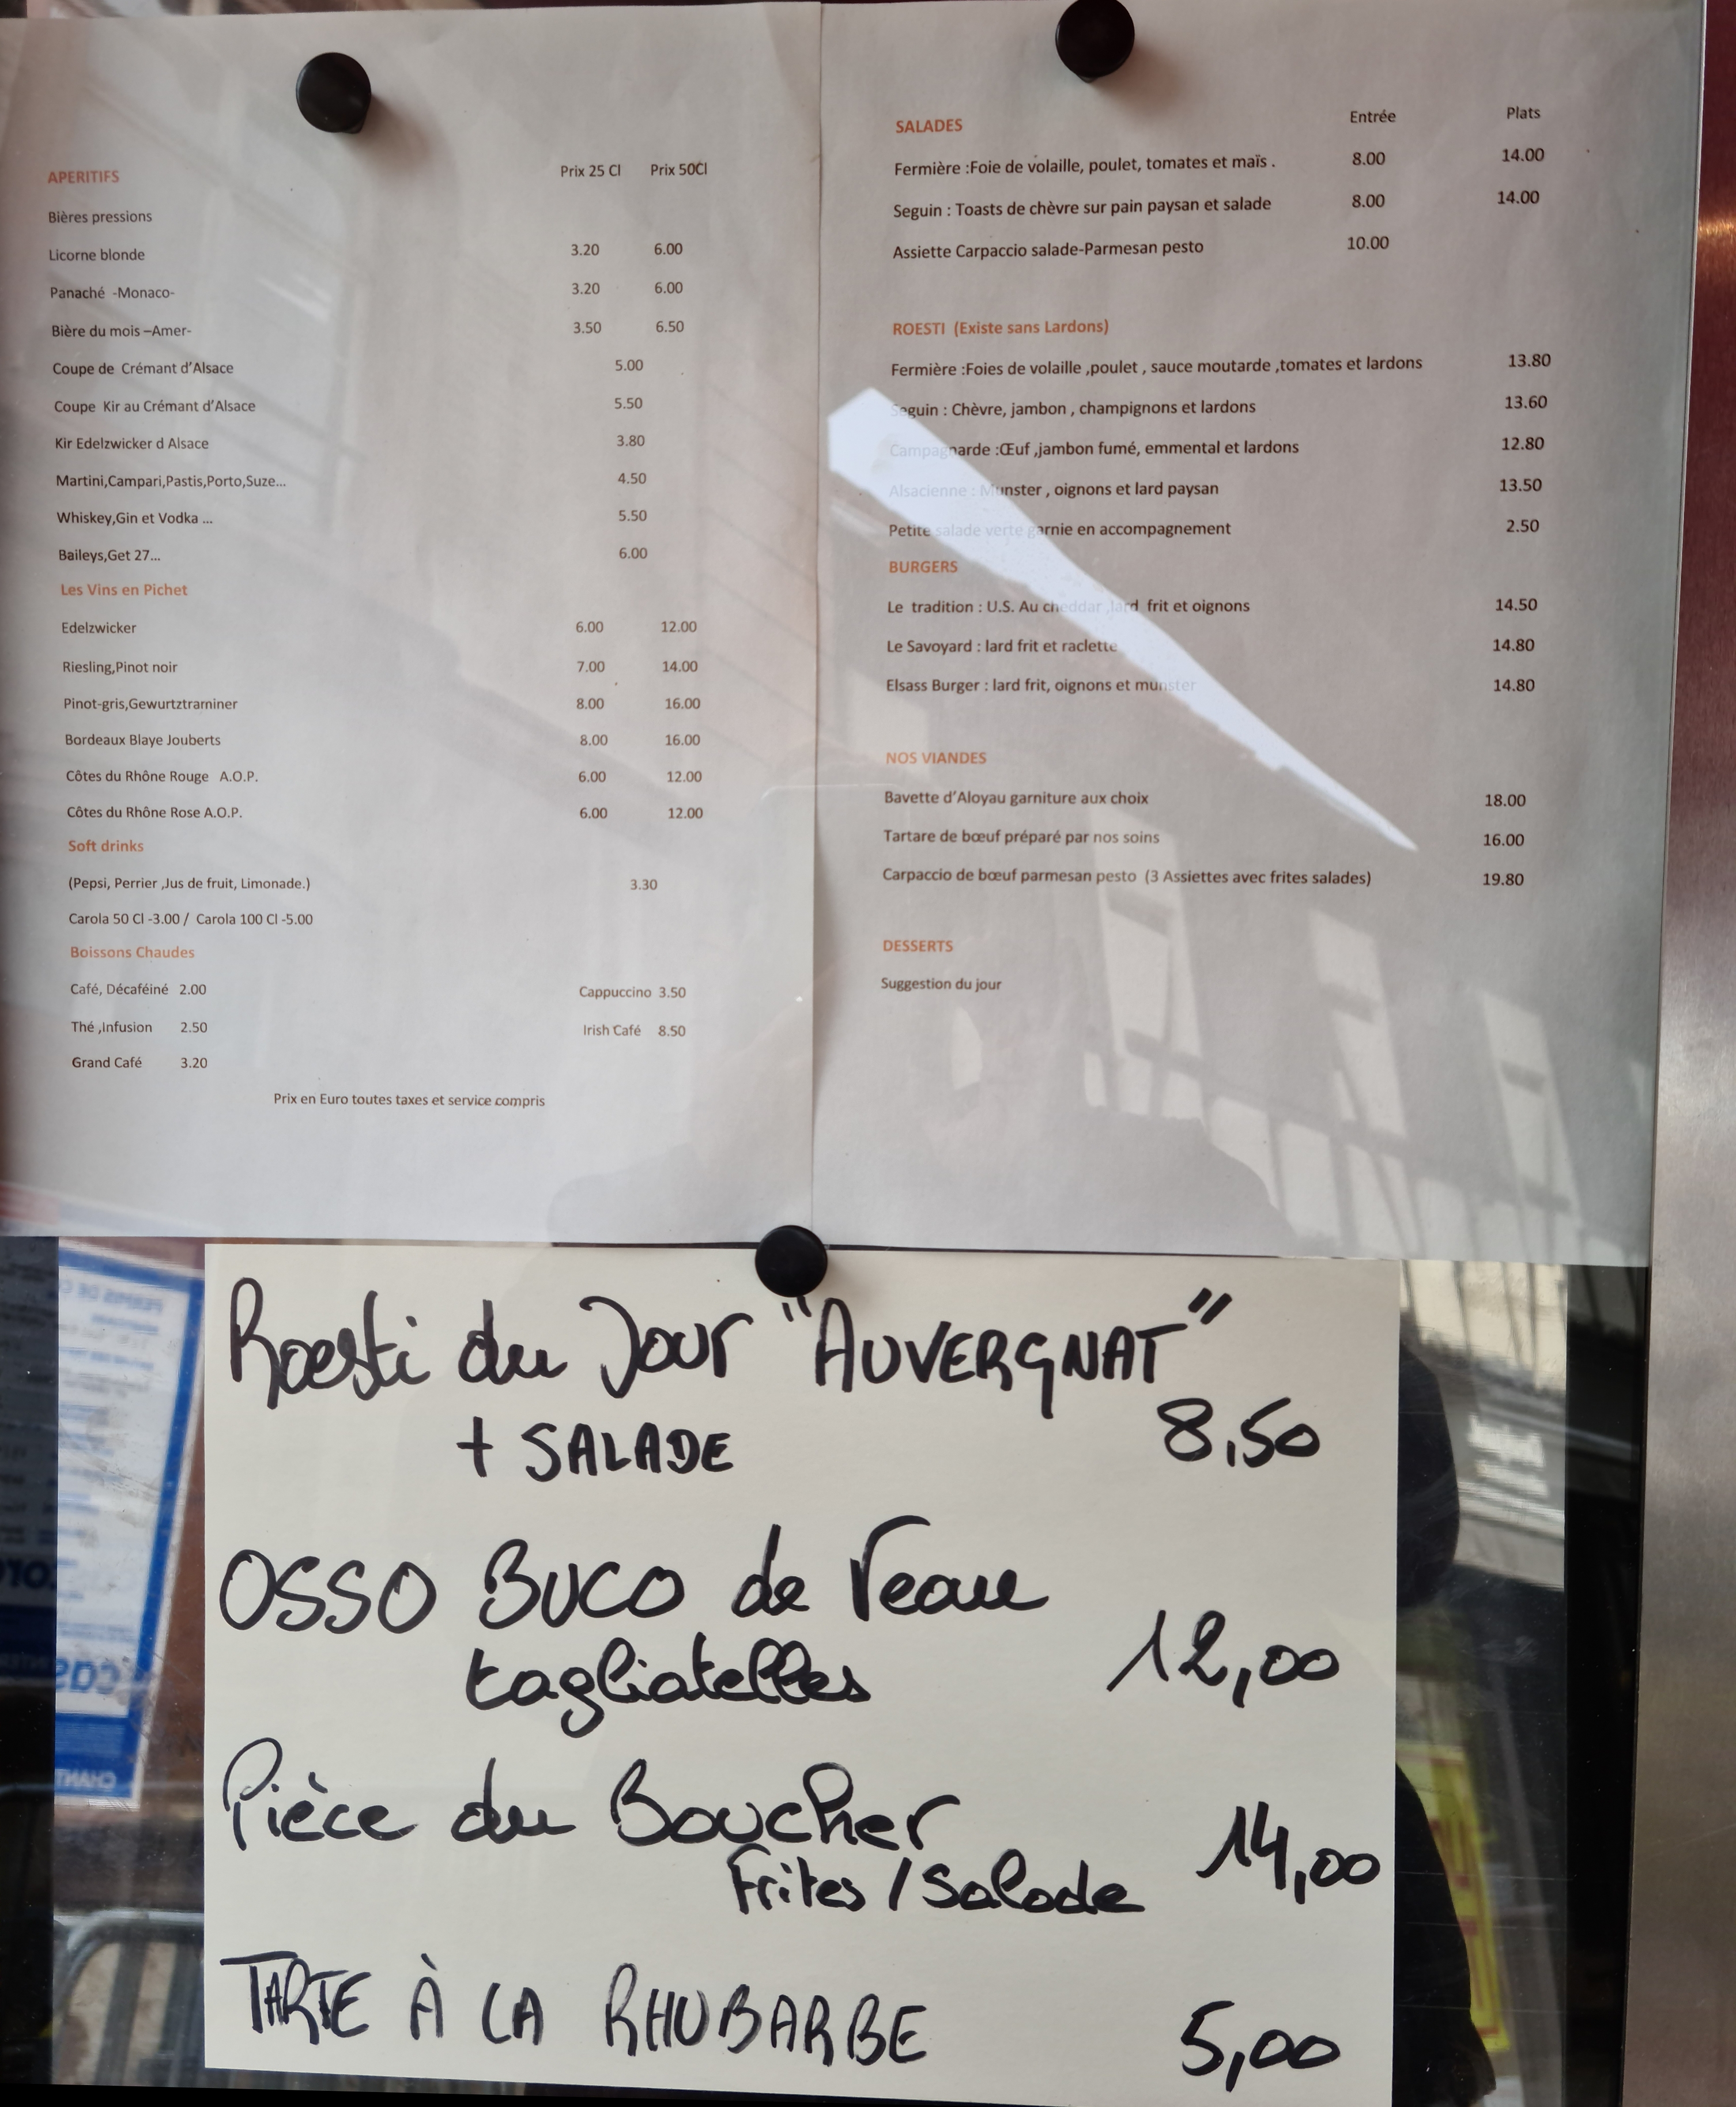 APERITIFS Prix 25 Cl Prix 50Cl
Bières pressions
Licorne blonde 3.20 6.00
Panaché -Monaco- 3.20 6.00
Bière du mois –Amer- 3.50 6.50
Coupe de Crémant d'Alsace 5.00
Coupe Kir au Crémant d'Alsace 5.50
Kir Edelzwicker d Alsace 3.80
Martini,Campari,Pastis,Porto,Suze... 4.50
Whiskey,Gin et Vodka ... 5.50
Baileys,Get 27... 6.00
Les Vins en Pichet
Edelzwicker 6.00 12.00
Riesling,Pinot noir 7.00 14.00
Pinot-gris,Gewurtztraminer 8.00 16.00
Bordeaux Blaye Jouberts 8.00 16.00
Côtes du Rhône Rouge A.O.P. 6.00 12.00
Côtes du Rhône Rose A.O.P. 6.00 12.00
Soft drinks
(Pepsi, Perrier ,Jus de fruit, Limonade.) 3.30
Carola 50 Cl -3.00 / Carola 100 Cl -5.00
Boissons Chaudes
Café, Décaféiné 2.00 Cappuccino 3.50
Thé ,Infusion 2.50 Irish Café 8.50
Grand Café 3.20
Prix en Euro toutes taxes et service compris
SALADES Entrée Plats
Fermière :Foie de volaille, poulet, tomates et maïs . 8.00 14.00
Seguin : Toasts de chèvre sur pain paysan et salade 8.00 14.00
Assiette Carpaccio salade-Parmesan pesto 10.00
ROESTI (Existe sans Lardons)
Fermière :Foies de volaille ,poulet , sauce moutarde ,tomates et lardons 13.80
Seguin : Chèvre, jambon , champignons et lardons 13.60
Campagnarde :Œuf ,jambon fumé, emmental et lardons 12.80
Alsacienne : Munster , oignons et lard paysan 13.50
Petite salade verte garnie en accompagnement 2.50
BURGERS
Le tradition : U.S. Au cheddar ,lard frit et oignons 14.50
Le Savoyard : lard frit et raclette 14.80
Elsass Burger : lard frit, oignons et munster 14.80
NOS VIANDES
Bavette d'Aloyau garniture aux choix 18.00
Tartare de bœuf préparé par nos soins 16.00
Carpaccio de bœuf parmesan pesto (3 Assiettes avec frites salades) 19.80
DESSERTS
Suggestion du jour
Roesti du Jour "AUVERGNAT"
+ SALADE 8,50
OSSO BUCO de Veau
tagliatelles 12,00
Pièce du Boucher
Frites / Salade 14,00
TARTE À LA RHUBARBE 5,00